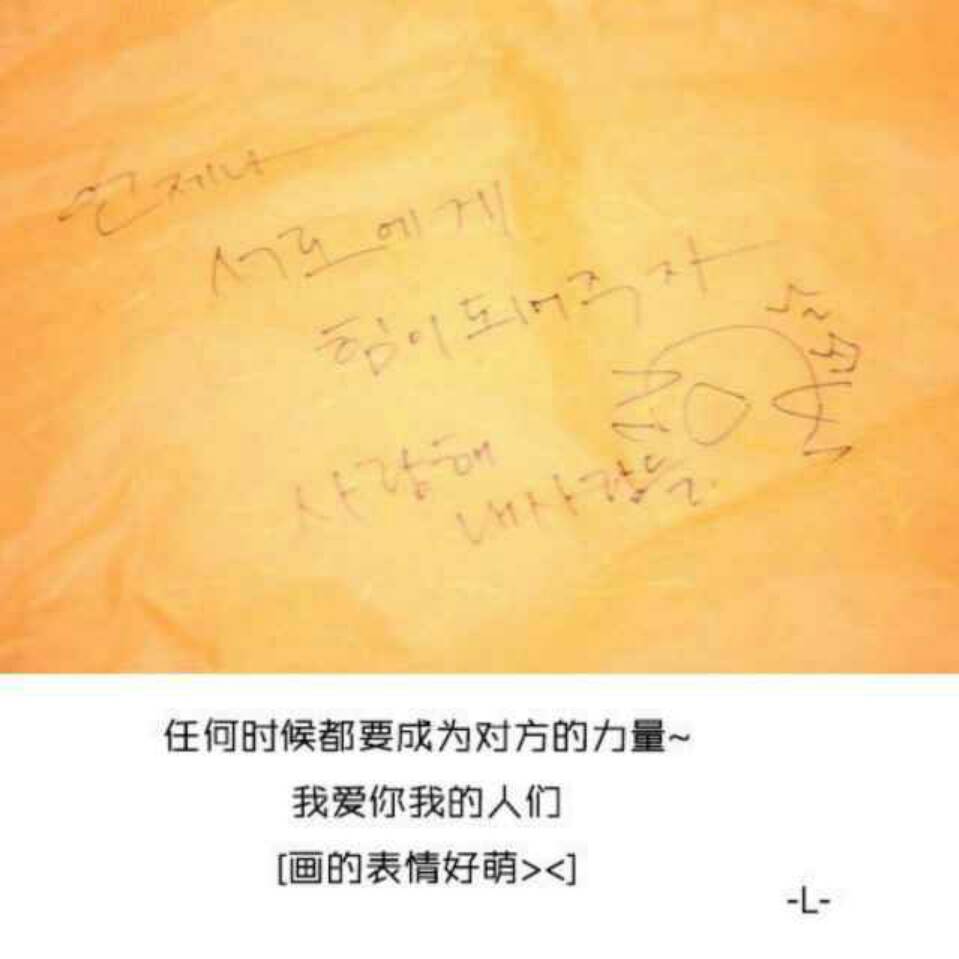 언제나
서로에게
힘이 되어주자
사랑해
내사람들.
任何时候都要成为对方的力量~
我爱你我的人们
[画的表情好萌><]
-L-